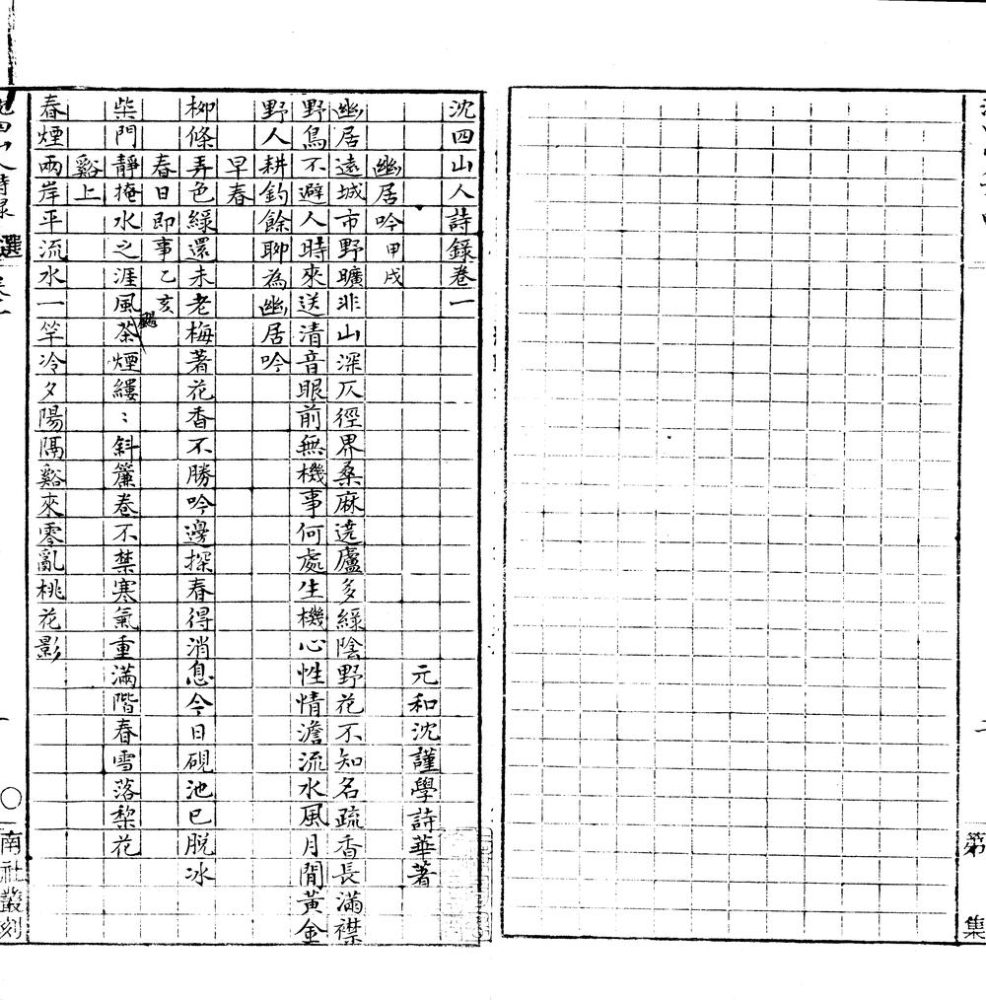 沈四山人詩錄卷一
元和沈謹學詩華著
幽居吟甲戌
幽居遠城市野曠非山深仄徑界桑麻遶廬多綠陰野花不知名疏香長滿襟
野鳥不避人時來送清音眼前無機事何處生機心性情澹流水風月閒黃金
野人耕釣餘聊為幽居吟
早春
柳條弄色綠還未老梅著花香不勝吟邊探春得消息今日硯池已脫冰
春日即事乙亥
柴門靜掩水之涯風茶煙縷：斜簾卷不禁寒氣重滿階春雪落梨花
谿上
春煙兩岸平流水一竿冷夕陽隔谿來零亂桃花影
四山人詩录 選
南社叢刻
第 集